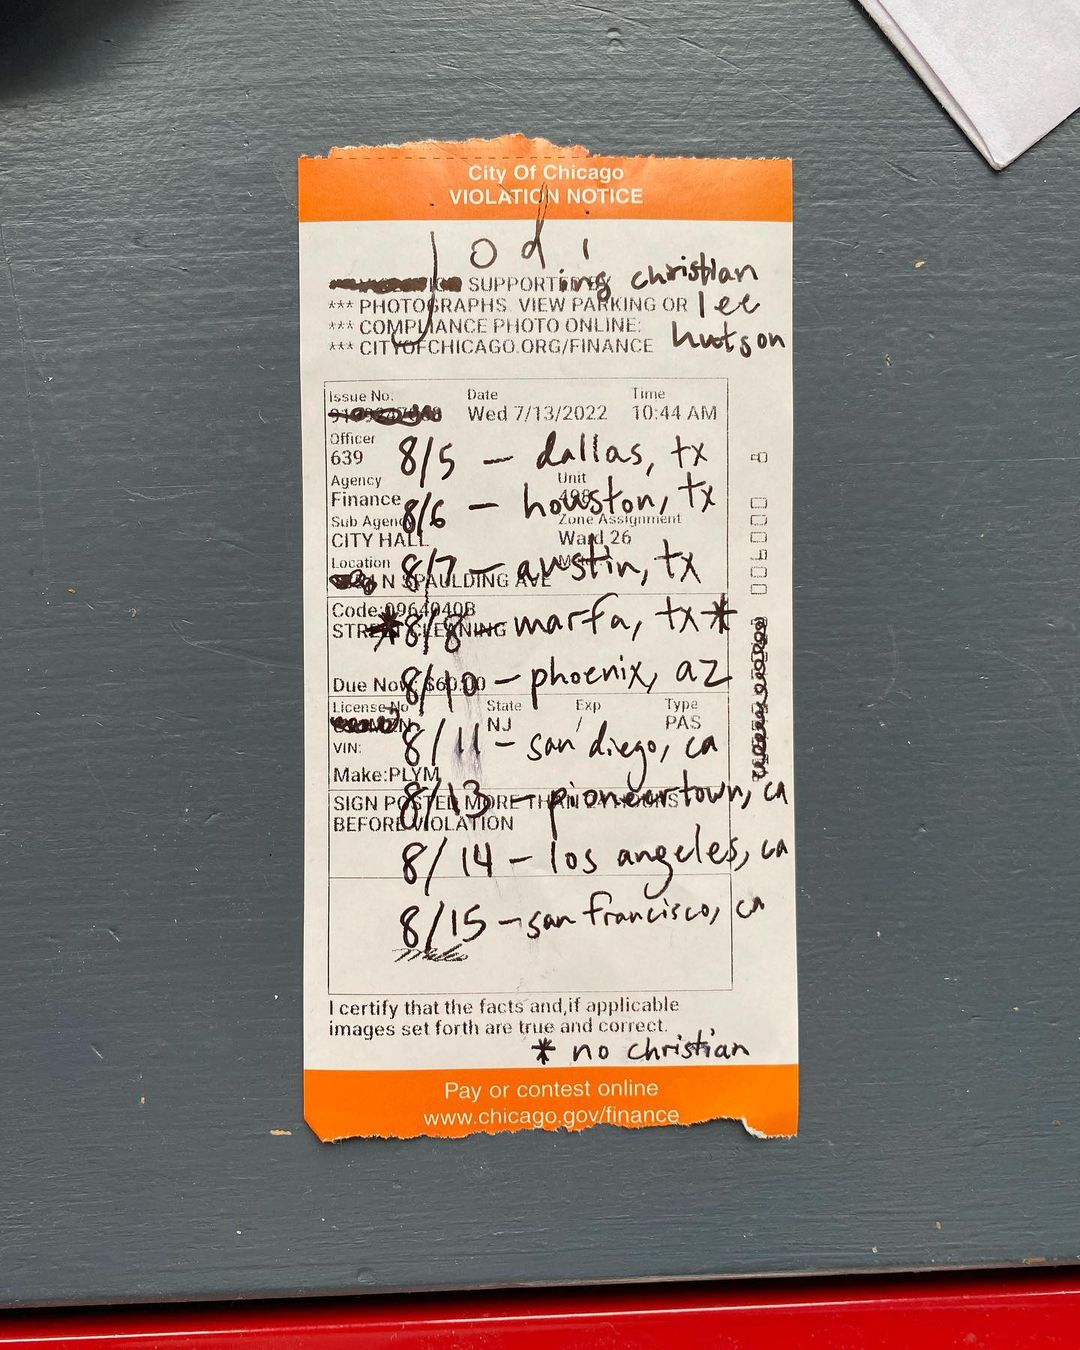 City Of Chicago
VIOLATION NOTICE
jodi
SUPPORTED BY ing christian
*** PHOTOGRAPHS. VIEW PARKING OR lee
*** COMPLIANCE PHOTO ONLINE: hutson
*** CITYOFCHICAGO.ORG/FINANCE
Issue No. Date Time
Wed 7/13/2022 10:44 AM
Officer
639
8/5 - dallas, tx
Agency Unit
Finance
8/6 - houston, tx
Sub Agency Zone Assignment
CITY HALL Ward 26
Location
8/7 - austin, tx
N SPAULDING AVE
Code:0964040B
STREET CLEANING
*8/8 - marfa, tx*
Due Now: $60.00
8/10 - phoenix, az
License No State Exp Type
NJ / PAS
VIN:
8/11 - san diego, ca
Make:PLYM
8/13 - pioneertown, ca
SIGN POSTED MORE THAN 24 HOURS
BEFORE VIOLATION
8/14 - los angeles, ca
8/15 - san francisco, ca
I certify that the facts and,if applicable
images set forth are true and correct.
* no christian
Pay or contest online
www.chicago.gov/finance